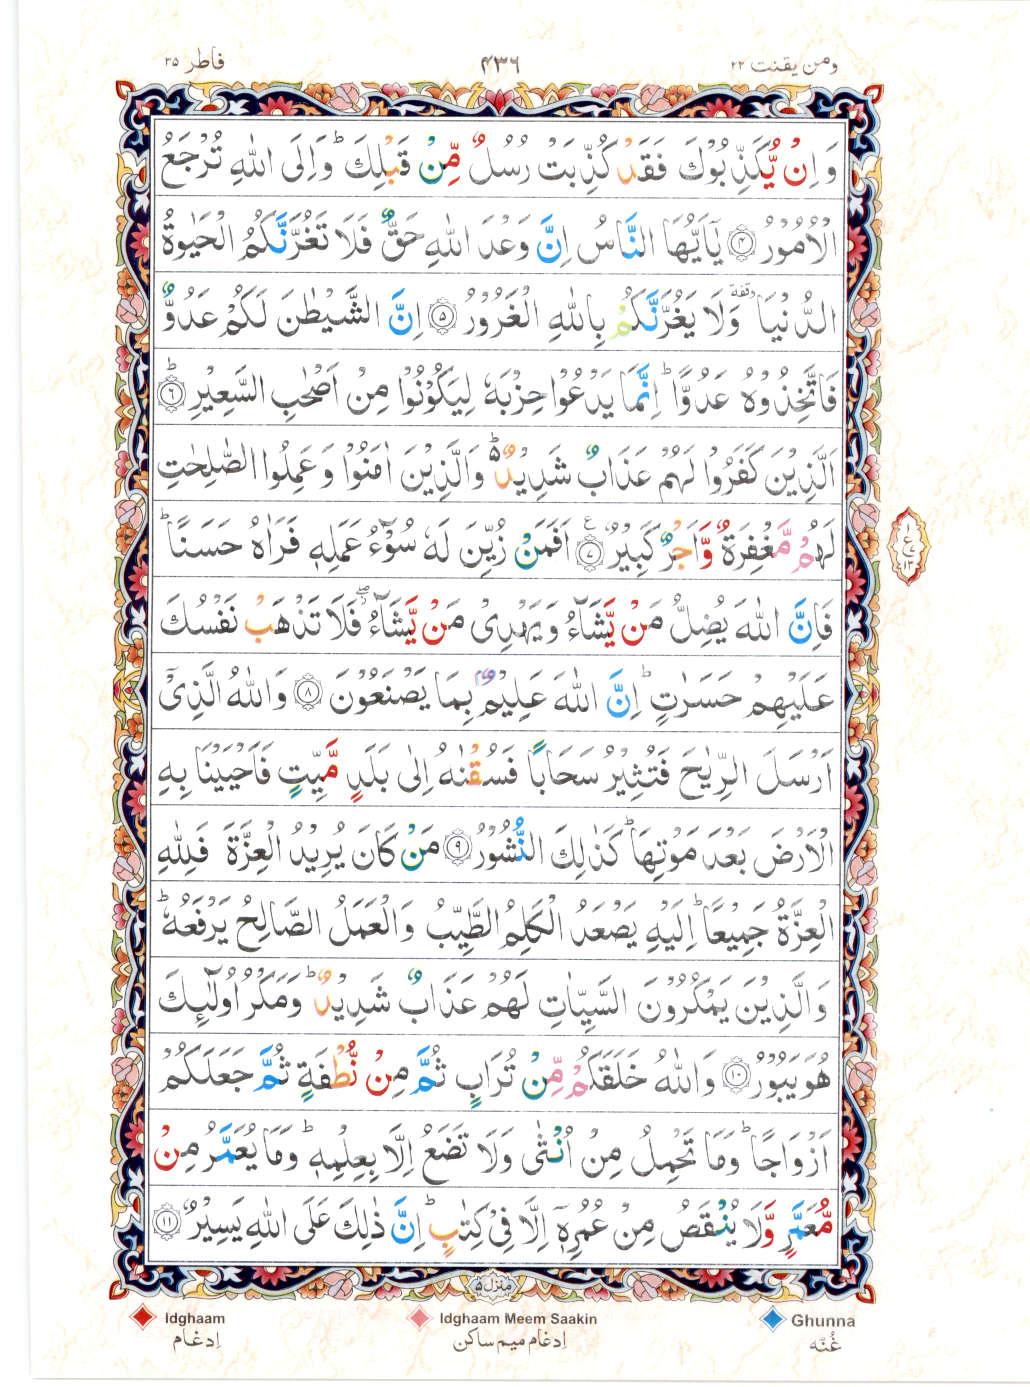 ومن يقنت ٢٢
٤٣٦
فاطر ٣٥
وَ اِنْ يُّكَذِّبُوْكَ فَقَدْ كُذِّبَتْ رُسُلٌ مِّنْ قَبْلِكَ ؕ وَ اِلَى اللّٰهِ تُرْجَعُ
الْاُمُوْرُ ﴿۴﴾ يٰۤاَيُّهَا النَّاسُ اِنَّ وَعْدَ اللّٰهِ حَقٌّ فَلَا تَغُرَّنَّكُمُ الْحَيٰوةُ
الدُّنْيَا ٝ وَلَا يَغُرَّنَّكُمْ بِاللّٰهِ الْغَرُوْرُ ﴿۵﴾ اِنَّ الشَّيْطٰنَ لَكُمْ عَدُوٌّ
فَاتَّخِذُوْهُ عَدُوًّا ؕ اِنَّمَا يَدْعُوْا حِزْبَهٗ لِيَكُوْنُوْا مِنْ اَصْحٰبِ السَّعِيْرِ ؕ ﴿۶﴾
اَلَّذِيْنَ كَفَرُوْا لَهُمْ عَذَابٌ شَدِيْدٌ ؕ۬ وَالَّذِيْنَ اٰمَنُوْا وَ عَمِلُوا الصّٰلِحٰتِ
لَهُمْ مَّغْفِرَةٌ وَّاَجْرٌ كَبِيْرٌ ﴿۷﴾ ع اَفَمَنْ زُيِّنَ لَهٗ سُوْٓءُ عَمَلِهٖ فَرَاٰهُ حَسَنًا ؕ
فَاِنَّ اللّٰهَ يُضِلُّ مَنْ يَّشَآءُ وَ يَهْدِيْ مَنْ يَّشَآءُ ۖ فَلَا تَذْهَبْ نَفْسُكَ
عَلَيْهِمْ حَسَرٰتٍ ؕ اِنَّ اللّٰهَ عَلِيْمٌۢ بِمَا يَصْنَعُوْنَ ﴿۸﴾ وَاللّٰهُ الَّذِيْۤ
اَرْسَلَ الرِّيٰحَ فَتُثِيْرُ سَحَابًا فَسُقْنٰهُ اِلٰى بَلَدٍ مَّيِّتٍ فَاَحْيَيْنَا بِهِ
الْاَرْضَ بَعْدَ مَوْتِهَا ؕ كَذٰلِكَ النُّشُوْرُ ﴿۹﴾ مَنْ كَانَ يُرِيْدُ الْعِزَّةَ فَلِلّٰهِ
الْعِزَّةُ جَمِيْعًا ؕ اِلَيْهِ يَصْعَدُ الْكَلِمُ الطَّيِّبُ وَ الْعَمَلُ الصَّالِحُ يَرْفَعُهٗ ؕ
وَالَّذِيْنَ يَمْكُرُوْنَ السَّيِّاٰتِ لَهُمْ عَذَابٌ شَدِيْدٌ ؕ وَمَكْرُ اُولٰٓئِكَ
هُوَ يَبُوْرُ ﴿۱۰﴾ وَ اللّٰهُ خَلَقَكُمْ مِّنْ تُرَابٍ ثُمَّ مِنْ نُّطْفَةٍ ثُمَّ جَعَلَكُمْ
اَزْوَاجًا ؕ وَمَا تَحْمِلُ مِنْ اُنْثٰى وَلَا تَضَعُ اِلَّا بِعِلْمِهٖ ؕ وَمَا يُعَمَّرُ مِنْ
مُّعَمَّرٍ وَّلَا يُنْقَصُ مِنْ عُمُرِهٖۤ اِلَّا فِيْ كِتٰبٍ ؕ اِنَّ ذٰلِكَ عَلَى اللّٰهِ يَسِيْرٌ ﴿۱۱﴾
منزل ۵
Idghaam
ادغام
Idghaam Meem Saakin
ادغام میم ساکن
Ghunna
غُنّه